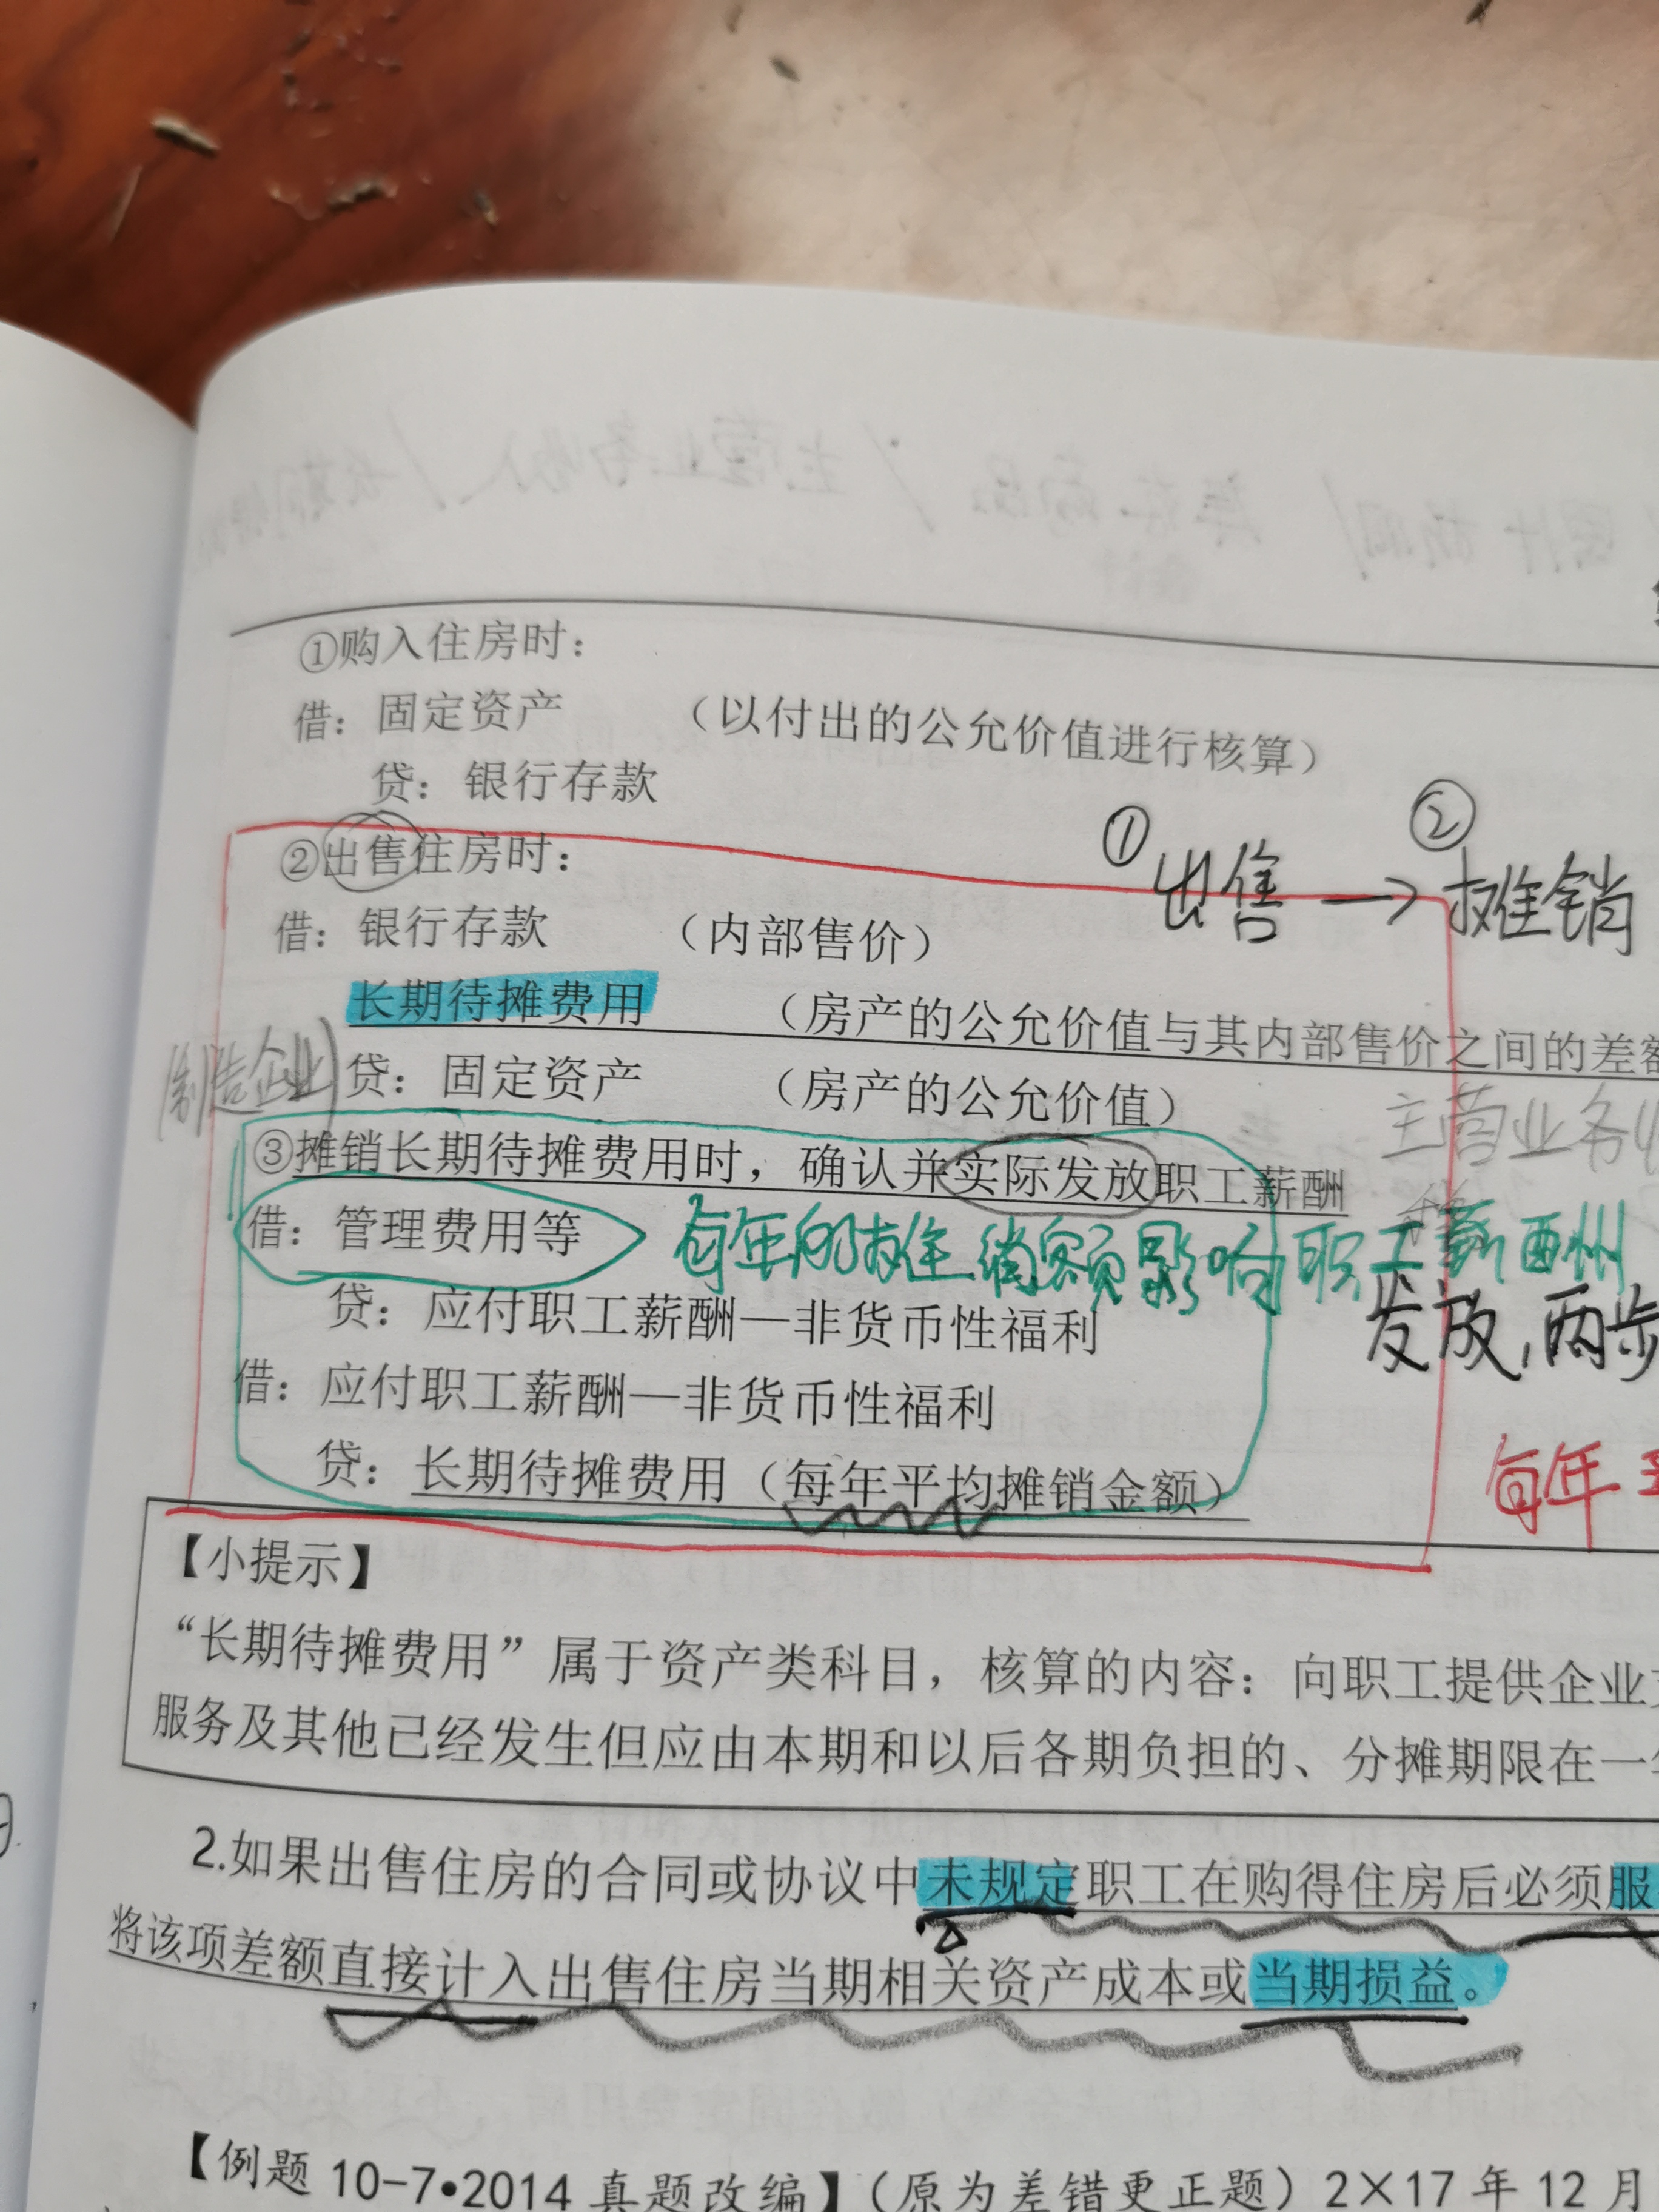 ①购入住房时：
借：固定资产　（以付出的公允价值进行核算）
贷：银行存款
②出售住房时：
① 出售 → ② 摊销
借：银行存款　（内部售价）
长期待摊费用　（房产的公允价值与其内部售价之间的差额
（制造企业）
贷：固定资产　（房产的公允价值）
主营业务收
③摊销长期待摊费用时，确认并实际发放职工薪酬
借：管理费用等
每年的摊销额影响职工薪酬
贷：应付职工薪酬—非货币性福利
发放，两步
借：应付职工薪酬—非货币性福利
贷：长期待摊费用（每年平均摊销金额）
每年
【小提示】
“长期待摊费用”属于资产类科目，核算的内容：向职工提供企业
服务及其他已经发生但应由本期和以后各期负担的、分摊期限在一
2.如果出售住房的合同或协议中未规定职工在购得住房后必须服
将该项差额直接计入出售住房当期相关资产成本或当期损益。
【例题 10-7•2014 真题改编】（原为差错更正题）2×17 年 12 月